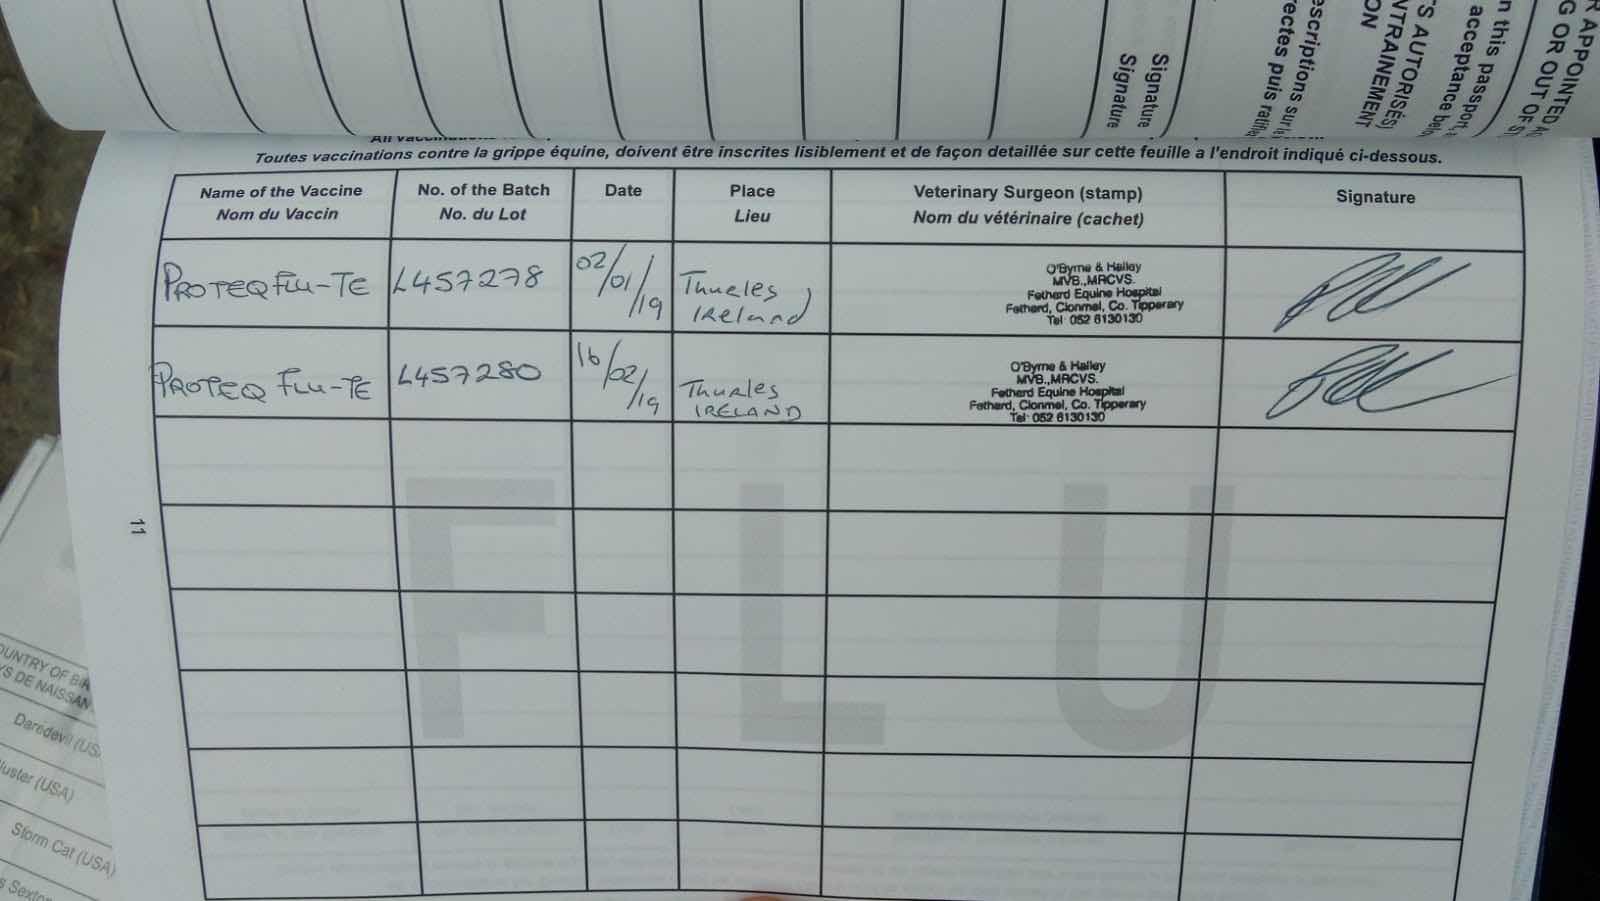 Signature
Signature
R APPOINTED
G OR OUT OF
n this passport,
acceptance
S AUTORISÉS
NTRAINEMENT
ON
escriptions sur
ectes puis
Toutes vaccinations contre la grippe équine, doivent être inscrites lisiblement et de façon detaillée sur cette feuille a l'endroit indiqué ci-dessous.
Name of the Vaccine
Nom du Vaccin
No. of the Batch
No. du Lot
Date
Place
Lieu
Veterinary Surgeon (stamp)
Nom du vétérinaire (cachet)
Signature
PROTEQ FLU-TE
L457278
02/01/19
Thurles
Ireland
O'Byrne & Halley
MVB.,MRCVS.
Fethard Equine Hospital
Fethard, Clonmel, Co. Tipperary
Tel: 052 6130130
PROTEQ FLU-TE
L457280
16/02/19
Thurles
IRELAND
O'Byrne & Halley
MVB.,MRCVS.
Fethard Equine Hospital
Fethard, Clonmel, Co. Tipperary
Tel: 052 6130130
FLU
11
OUNTRY OF BIR
YS DE NAISSAN
Daredevil (USA
luster (USA)
Storm Cat (USA)